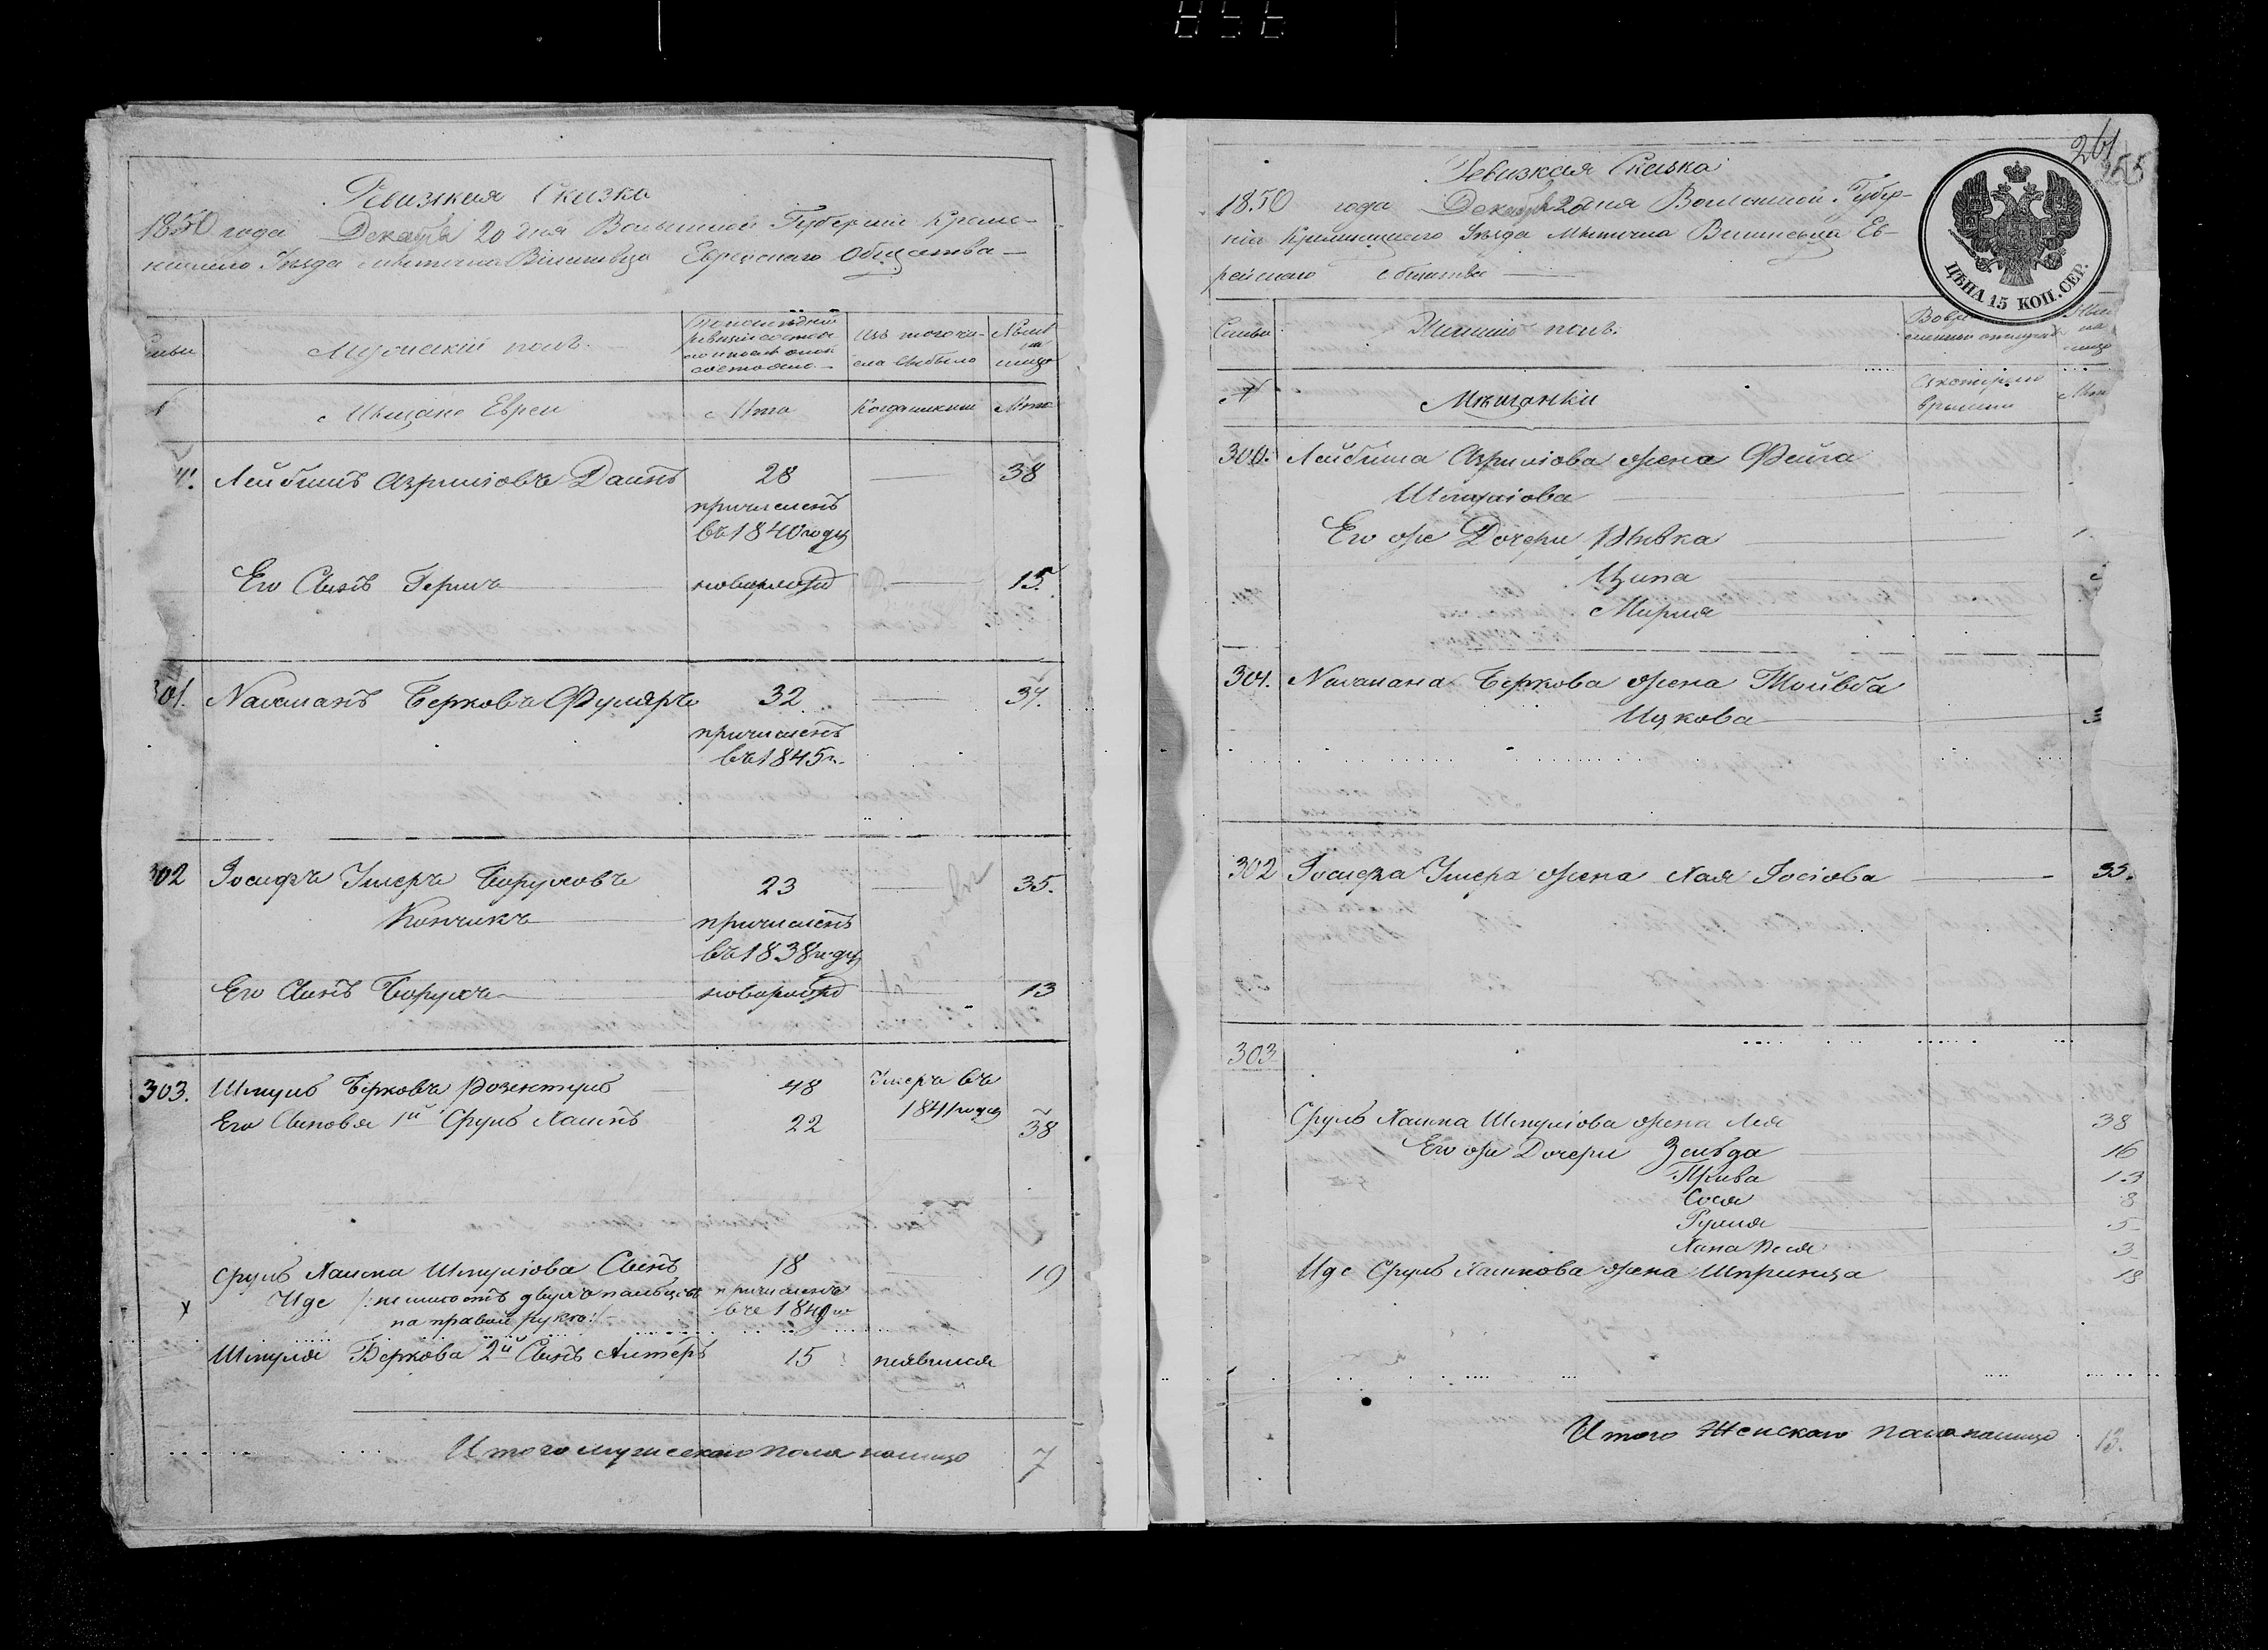 Ревизкая Сказка
1850 года Декабря 20 дня Волынской Губернии Креме-
нецкаго Уезда Местечка Вишневца Еврейскаго Общества
Мужеский полъ
По последней
ревизии состоя
ло и после оной
Изъ того чи-
сла выбыло
Ныне
на
лицо
Мещане Евреи
Лета
Когда именно
Лета
Лейбишъ Азрилiовъ Даинъ
28
38
причисленъ
въ 1840 году
Его Сынъ Гершъ
новорожд
15.
301.
Беркова Фуляръ
32
37.
причисленъ
въ 1845 г.
302
Iосифъ Умеръ Боруховъ
23
35.
Кончикъ
причисленъ
въ 1838 году
Его Сынъ Борухъ
новорожд
13
303.
Шмуль Берковъ Розентуль
48
Умеръ въ
1841 году
Его Сыновья 1й Сруль Хаимъ
22
38
Сруль Хаима Шмулiова Сынъ
18
19
Иде /: неимеетъ двухъ пальцевъ
на правой руке :/
причисленъ
въ 1849 го
x
Шмуля Беркова 2й Сынъ Алтеръ
15
неявился
Итого мужескаго пола налицо
7
261
255
Ревизкая Сказка
1850 года Декабря 20 дня Волынской Губер-
нiи Кременецкаго Уезда Местечка Вишневца Ев-
рейскаго Общества
ЦѢНА 15 КОП. СЕР.
Семьи
Женский полъ.
Мещанки
Съ котораго
времени
300.
Лейбиша Азрилiова жена Фейга
Шмулiова
Его же Дочери Ривка
Ципа
Мирля
301.
Беркова жена Тойвба
Ицкова
302
Iосифа Умера жена Хая Iосiова
35.
303
Сруль Хаима Шмулiова жена Лея
38
Его же Дочери Зельда
16
Прива
13
Сося
8
Рухля
5
Хана Песя
3
Иде Сруль Хаимова жена Шпринца
18
Итого Женскаго пола налицо
13.